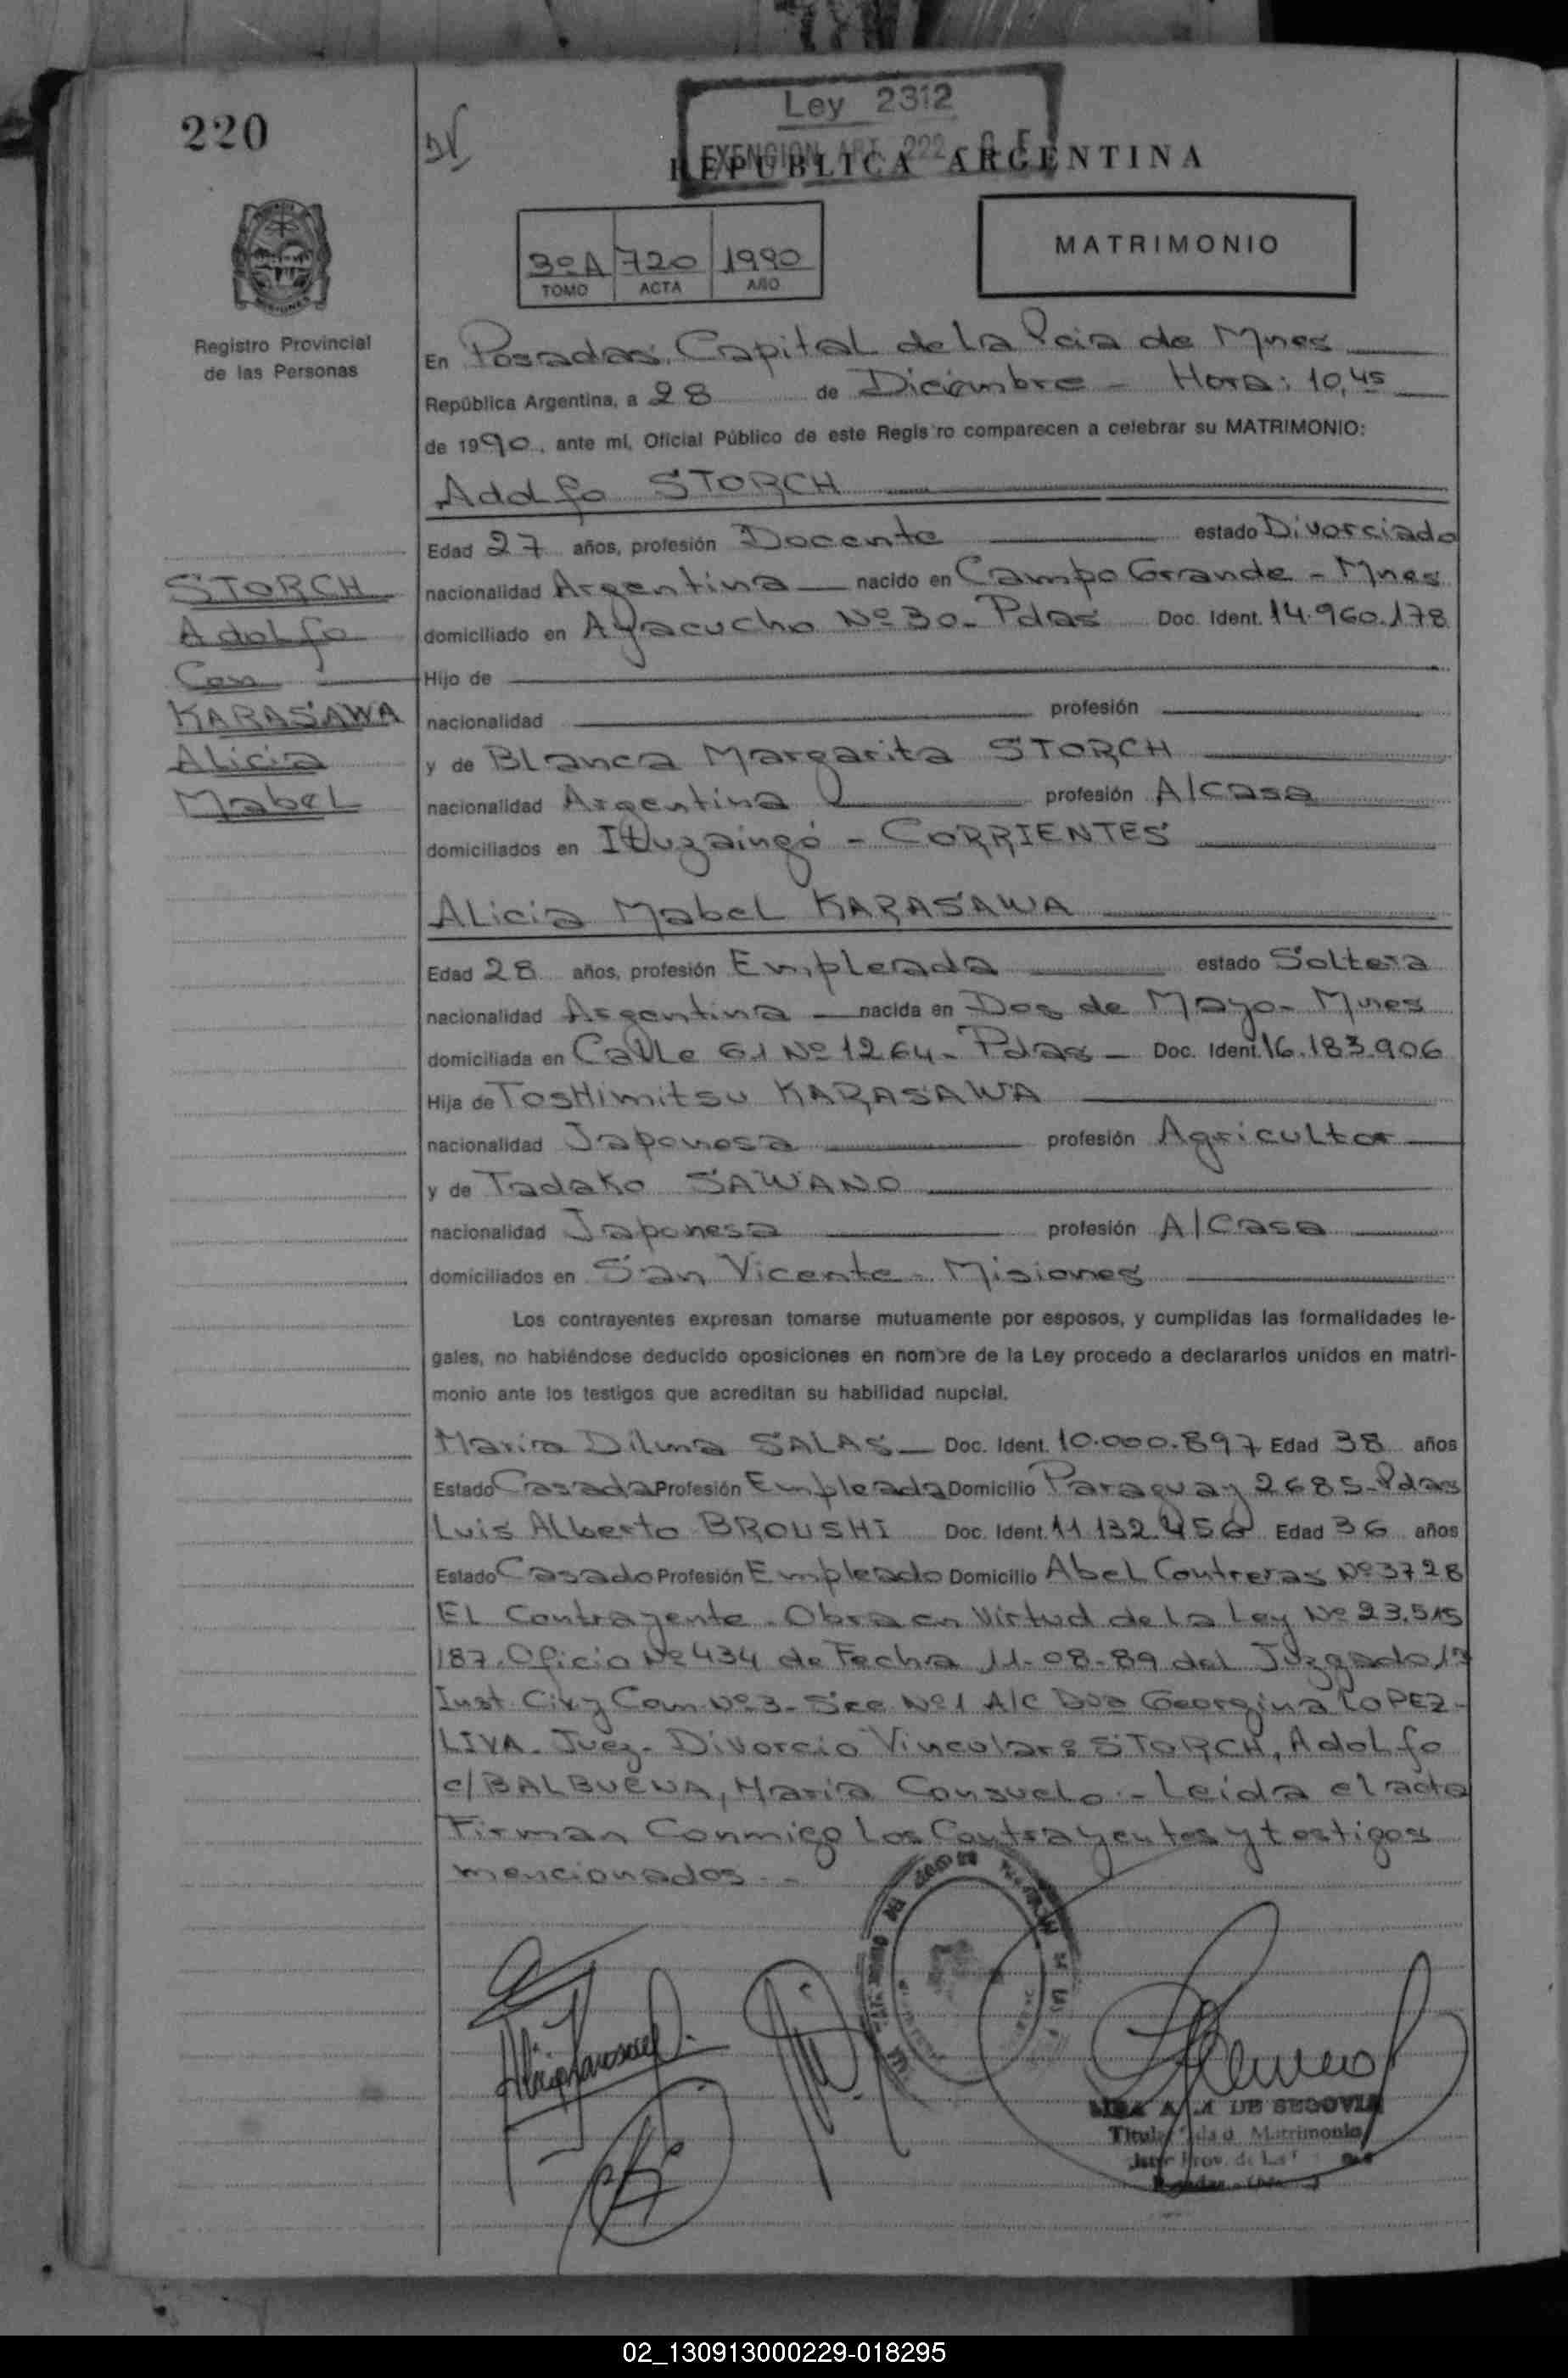 220
Ley 2312
EXENCION ART. 222
REPUBLICA ARGENTINA
3ºA 720 1990
TOMO ACTA AÑO
MATRIMONIO
Registro Provincial
de las Personas
En Posadas, Capital de la Pcia de Mnes
República Argentina, a 28 de Diciembre - Hora: 10,45
de 1990, ante mí, Oficial Público de este Regis ro comparecen a celebrar su MATRIMONIO:
Adolfo STORCH
Edad 27 años, profesión Docente estado Divorciado
nacionalidad Argentina nacido en Campo Grande - Mnes
domiciliado en Ayacucho Nº 30 - Pdas Doc. Ident. 14.960.178
Hijo de
nacionalidad profesión
y de Blanca Margarita STORCH
nacionalidad Argentina profesión A/casa
domiciliados en Ituzaingó - CORRIENTES
STORCH
Adolfo
Con
KARASAWA
Alicia
Mabel
Alicia Mabel KARASAWA
Edad 28 años, profesión Empleada estado Soltera
nacionalidad Argentina nacida en Dos de Mayo - Mnes
domiciliada en Calle 61 Nº 1264 - Pdas - Doc. Ident. 16.183.906
Hija de Toshimitsu KARASAWA
nacionalidad Japonesa profesión Agricultor
y de Tadako SAWANO
nacionalidad Japonesa profesión A/Casa
domiciliados en San Vicente - Misiones
Los contrayentes expresan tomarse mutuamente por esposos, y cumplidas las formalidades le-
gales, no habiéndose deducido oposiciones en nombre de la Ley procedo a declararlos unidos en matri-
monio ante los testigos que acreditan su habilidad nupcial.
Maria Dilma SALAS - Doc. Ident. 10.000.897 Edad 38 años
Estado Casada Profesión Empleada Domicilio Paraguay 2685 - Pdas
Luis Alberto BROUSHI Doc. Ident. 11 132.456 Edad 36 años
Estado Casado Profesión Empleado Domicilio Abel Contreras Nº 3728
El Contrayente - Obra en Virtud de la Ley Nº 23.515
187. Oficio Nº 434 de Fecha 11-08-89 del Juzgado 1ª
Inst. Civ y Com Nº 3 - Sec Nº 1 A/C Dra Georgina LOPEZ -
LIVA - Juez - Divorcio Vincular: STORCH, Adolfo
c/ BALBUENA, Maria Consuelo - Leida el acta
Firman Conmigo los Contrayentes y testigos
mencionados -
DE SEGOVIA
Matrimonio
02_130913000229-018295